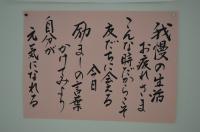 我慢の生活
お疲れさま
こんな時だからこそ
友だちに会える
今日
励ましの言葉
かけてみよう
自分が
元気になれる